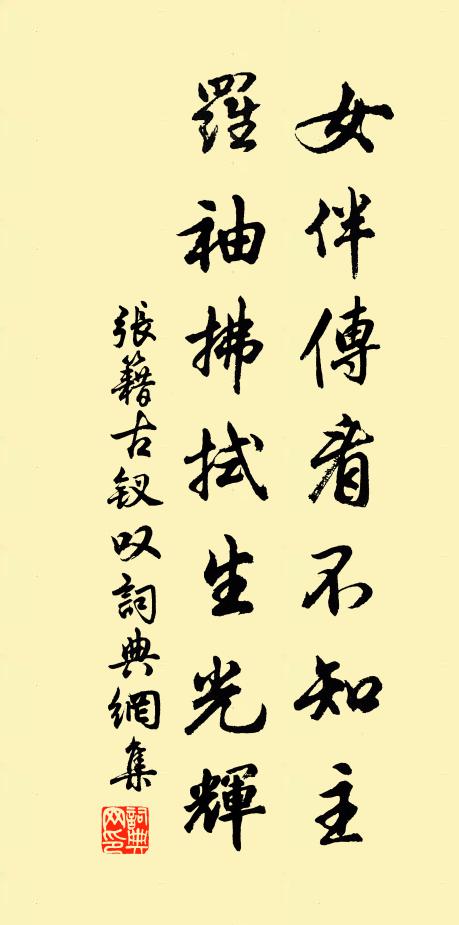 女伴傳看不知主
羅袖拂拭生光輝
張籍古釵叹詞典網集
詞典網印